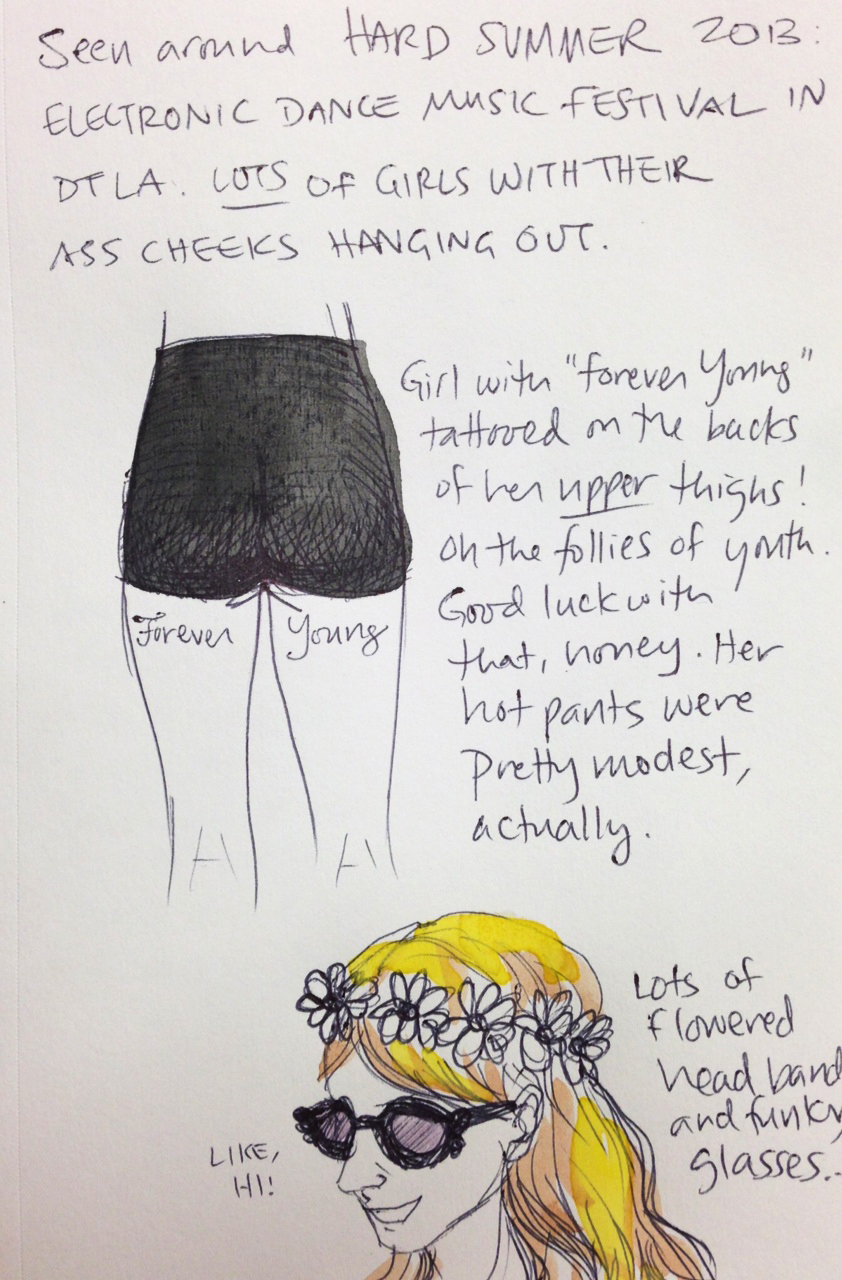 Seen around HARD SUMMER 2013:
ELECTRONIC DANCE MUSIC FESTIVAL IN
DTLA. LOTS OF GIRLS WITH THEIR
ASS CHEEKS HANGING OUT.
Girl with "Forever Young"
tattooed on the backs
of her upper thighs!
Oh the follies of youth.
Good luck with
that, honey. Her
hot pants were
pretty modest,
actually.
Forever Young
Lots of
flowered
head band
and funky
glasses..
LIKE,
HI!